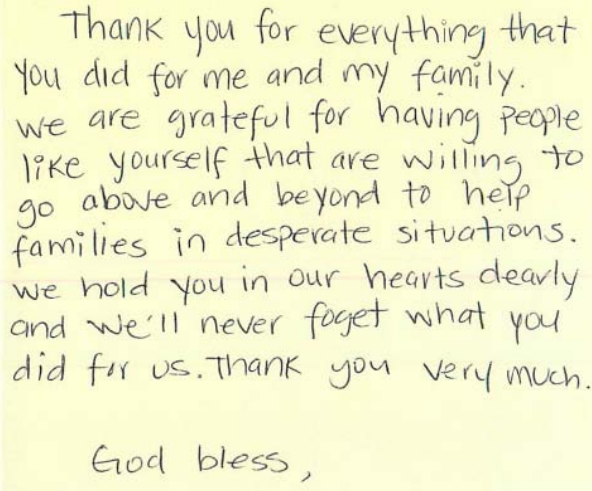 Thank you for everything that
you did for me and my family.
we are grateful for having people
like yourself that are willing to
go above and beyond to help
families in desperate situations.
we hold you in our hearts dearly
and we'll never foget what you
did for us. Thank you very much.
God bless,